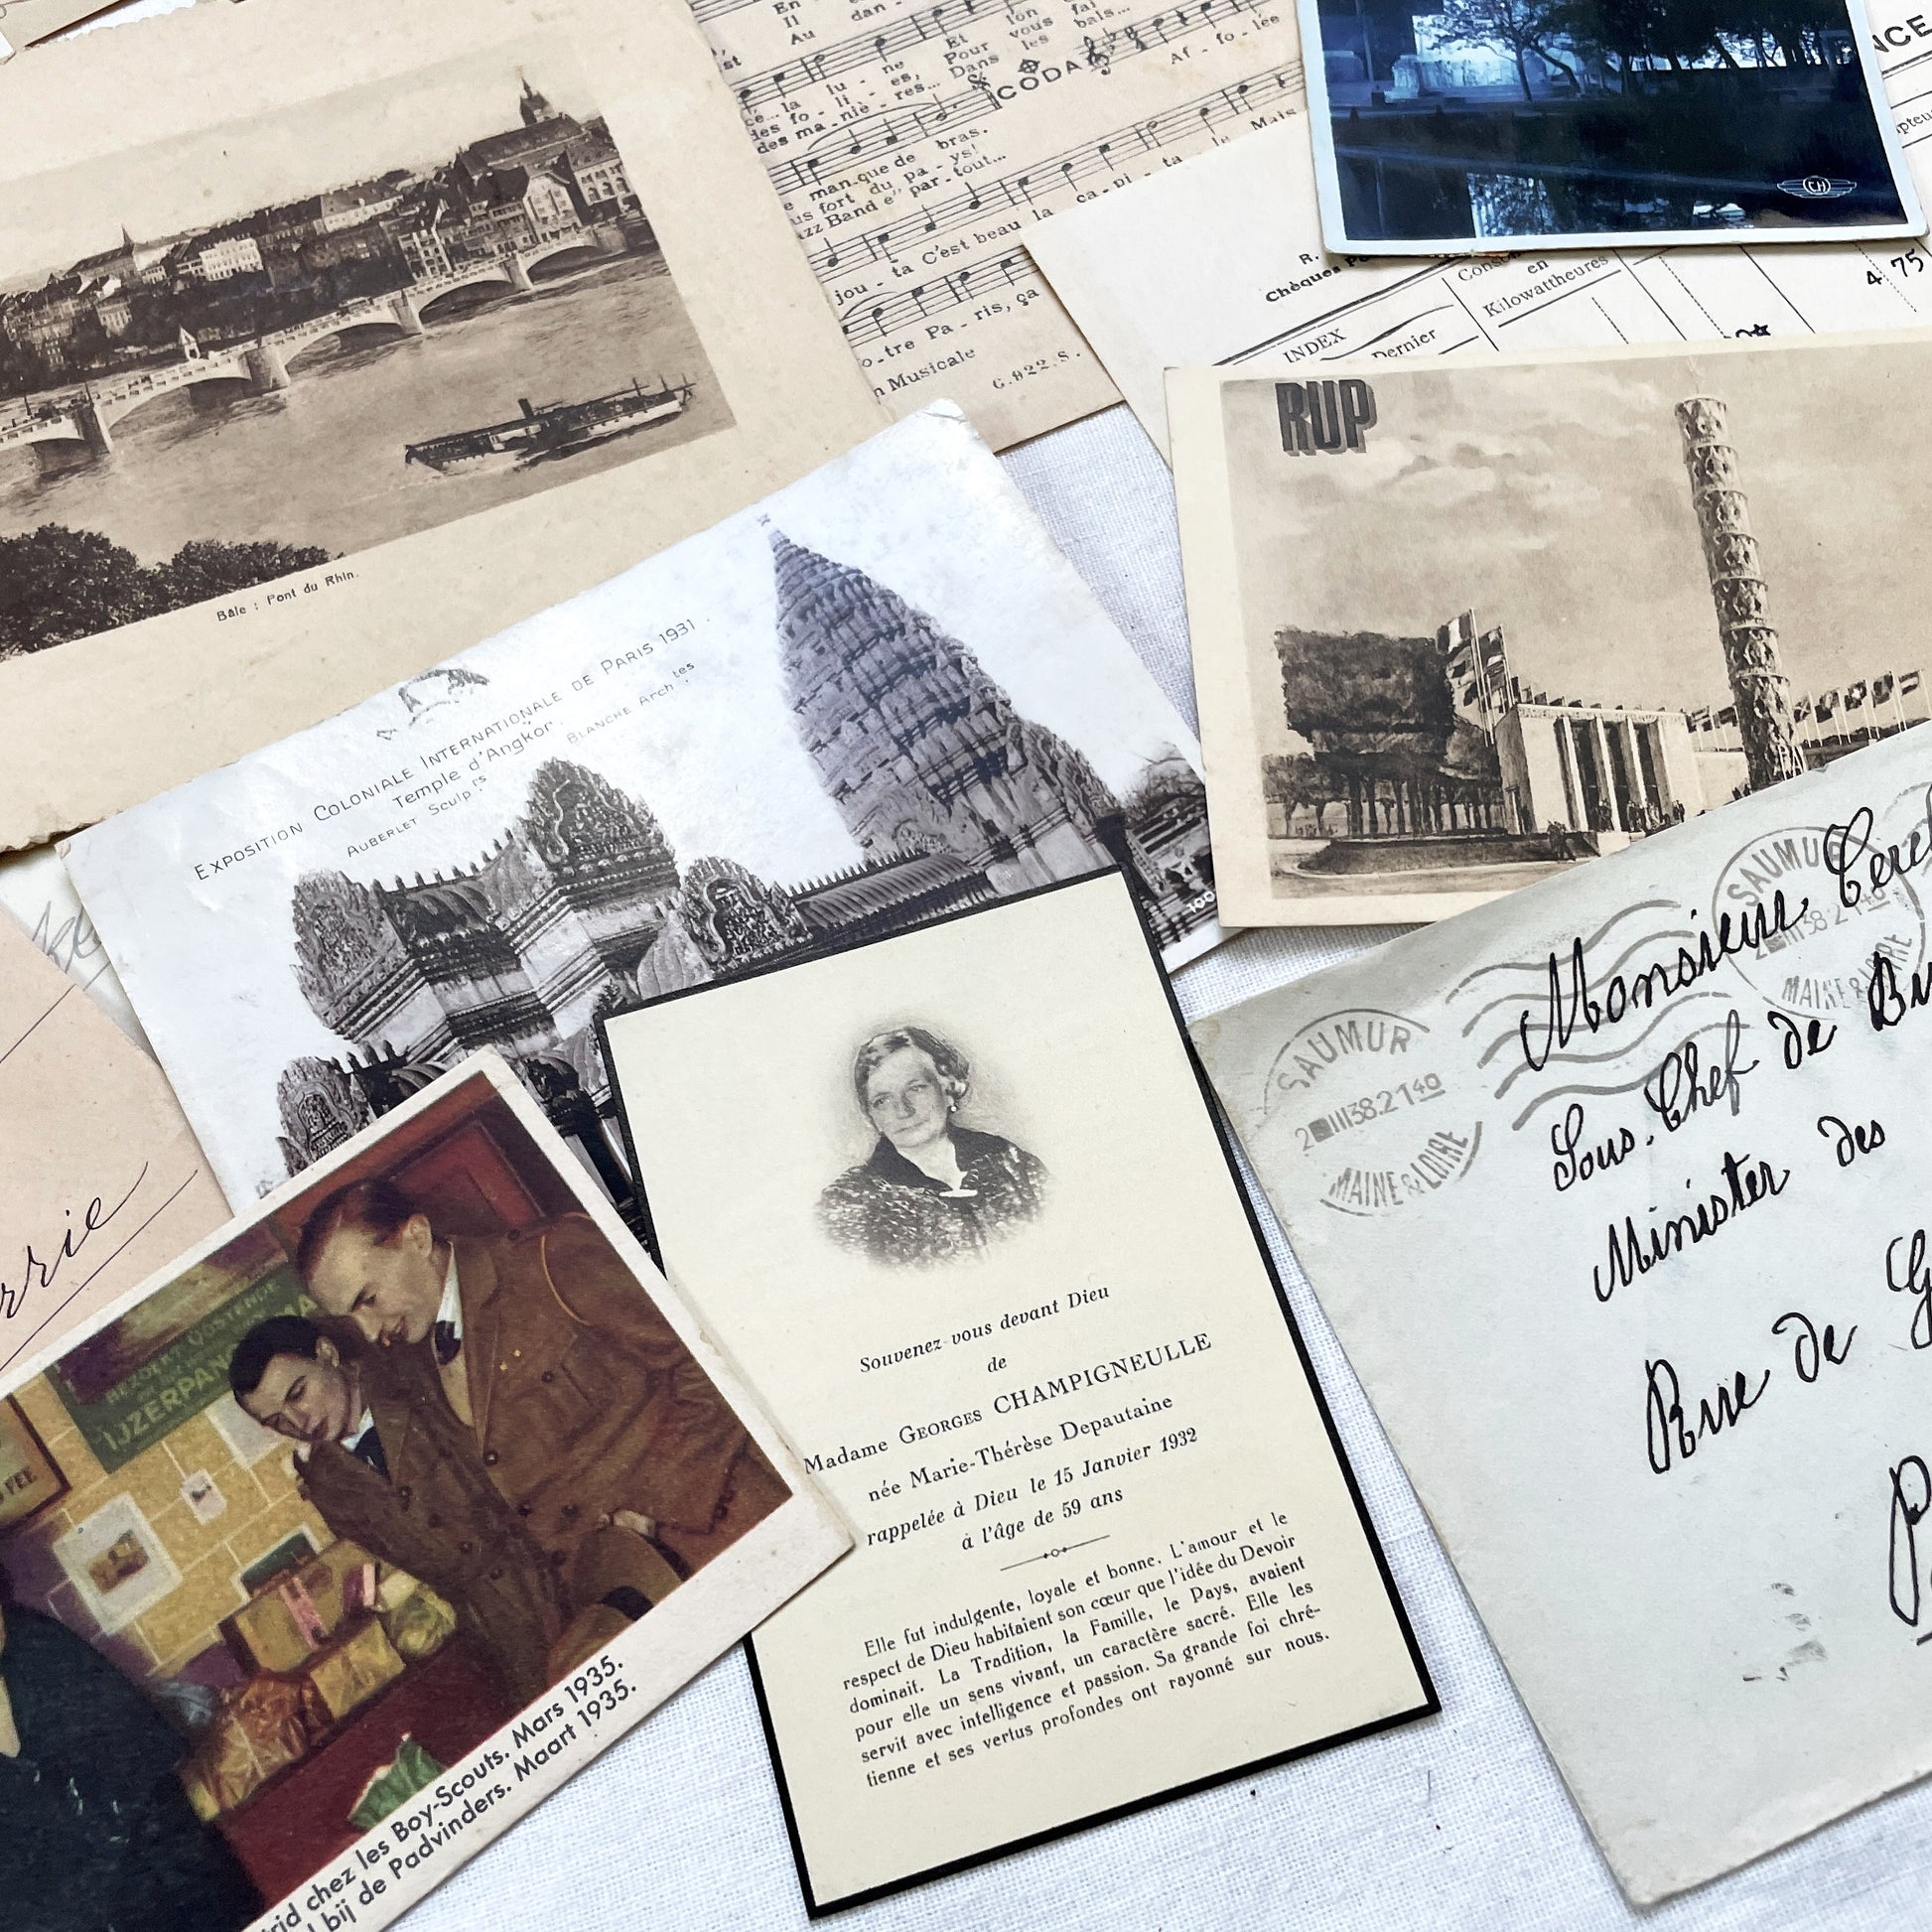 En
Il dan -
Au
lon fai
Et vous bais...
Pour les
Dans
la lu - ne
des fo - li - es,
des ma - niè - res...
CODA
Af - fo - lée
man-que de bras.
us fort du pa - ys!
azz Band e" par - tout...
jou - ta C'est beau la ca - pi - ta le Mais
o - tre Pa - ris, ça
n Musicale
G.922.S.
Bâle : Pont du Rhin.
CH
NCE
R.
Chèques
INDEX
Dernier
en
Kilowattheures
4 75
RUP
EXPOSITION COLONIALE INTERNATIONALE DE PARIS 1931.
Temple d'Angkor.
AUBERLET Sculprs BLANCHE Archtes
100
rrie
SAUMUR
2 III 38.21 40
MAINE & LOIRE
SAUMUR
III 38.21 40
MAINE & LOIRE
Monsieur
Sous-Chef de Bu
Minister des
Rue de G
P
OOSTENDE
IJZERPAN
FEE
rid chez les Boy-Scouts. Mars 1935.
bij de Padvinders. Maart 1935.
Souvenez-vous devant Dieu
de
Madame GEORGES CHAMPIGNEULLE
née Marie-Thérèse Depautaine
rappelée à Dieu le 15 Janvier 1932
à l'âge de 59 ans
Elle fut indulgente, loyale et bonne. L'amour et le
respect de Dieu habitaient son cœur que l'idée du Devoir
dominait. La Tradition, la Famille, le Pays, avaient
pour elle un sens vivant, un caractère sacré. Elle les
servit avec intelligence et passion. Sa grande foi chré-
tienne et ses vertus profondes ont rayonné sur nous.